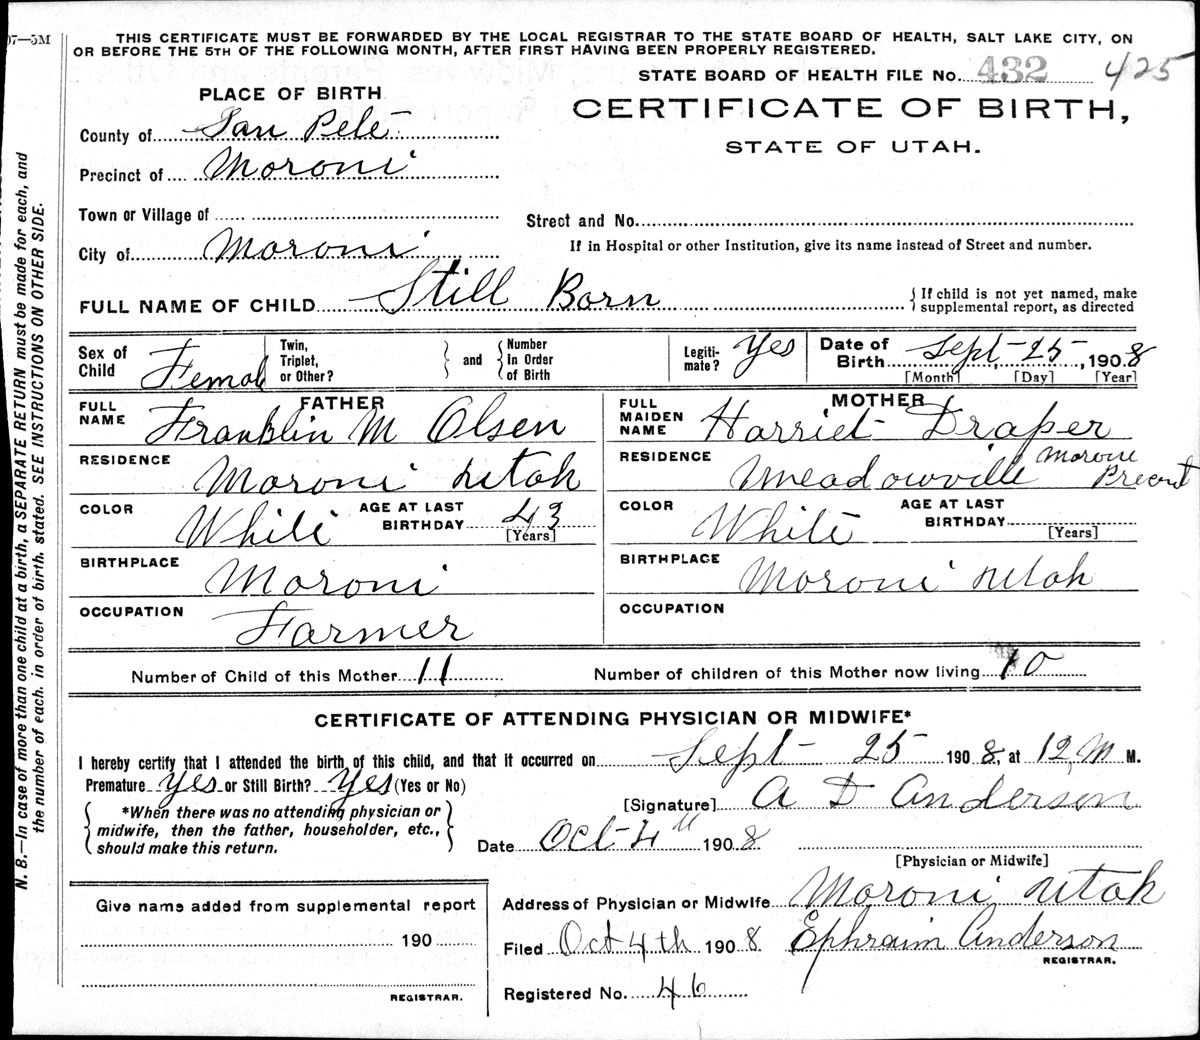 07—5M
THIS CERTIFICATE MUST BE FORWARDED BY THE LOCAL REGISTRAR TO THE STATE BOARD OF HEALTH, SALT LAKE CITY, ON
OR BEFORE THE 5TH OF THE FOLLOWING MONTH, AFTER FIRST HAVING BEEN PROPERLY REGISTERED.
STATE BOARD OF HEALTH FILE No. 432 425
PLACE OF BIRTH
CERTIFICATE OF BIRTH,
STATE OF UTAH.
County of San Pete
Precinct of Moroni
Town or Village of
Street and No.
City of Moroni
If in Hospital or other Institution, give its name instead of Street and number.
FULL NAME OF CHILD Still Born
{ If child is not yet named, make
supplemental report, as directed
Sex of Child Femal
Twin, Triplet, or Other? } and { Number In Order of Birth
Legiti-mate? Yes
Date of Birth Sept-25, 1908
[Month] [Day] [Year]
FATHER
FULL NAME Franklin M Olsen
MOTHER
FULL MAIDEN NAME Harriet Draper
RESIDENCE Moroni Utah
RESIDENCE Meadowville Moroni Precnt
COLOR White
AGE AT LAST BIRTHDAY 43 [Years]
COLOR White
AGE AT LAST BIRTHDAY [Years]
BIRTHPLACE Moroni
BIRTHPLACE Moroni Utah
OCCUPATION Farmer
OCCUPATION
Number of Child of this Mother 11
Number of children of this Mother now living 10
CERTIFICATE OF ATTENDING PHYSICIAN OR MIDWIFE*
I hereby certify that I attended the birth of this child, and that it occurred on Sept 25 1908, at 12, M M.
Premature yes or Still Birth? Yes (Yes or No)
*When there was no attending physician or
midwife, then the father, householder, etc.,
should make this return.
[Signature] A D Anderson
Date Oct-4th 1908
[Physician or Midwife]
Address of Physician or Midwife Moroni Utah
Filed Oct 4th 1908 Ephraim Anderson
REGISTRAR.
Registered No. 46
Give name added from supplemental report
190
REGISTRAR.
N. B.—In case of more than one child at a birth, a SEPARATE RETURN must be made for each, and
the number of each, in order of birth, stated. SEE INSTRUCTIONS ON OTHER SIDE.